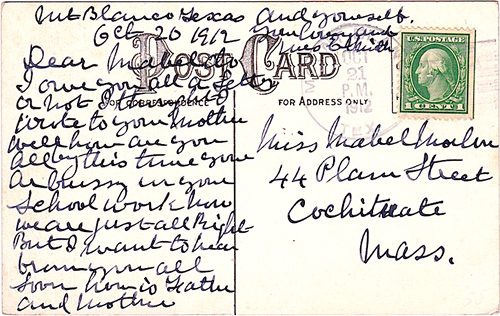 Mt Blanco Texas and yourself.
Oct 20 1912 your Cousin and
Mrs E Smith
Dear Mabel
I owe you all a letter
or not
write to your Mother
well how are you
all by this time your
ar bussy in your
school work now
we are just all Right
But I want to hear
from you all
soon how is Father
and Mother
POST CARD
FOR CORRESPONDENCE
FOR ADDRESS ONLY
OCT
21
P.M.
1912
TEX.
U.S. POSTAGE
1 CENT 1
Miss Mabel
44 Plain Street
Cochituate
Mass.